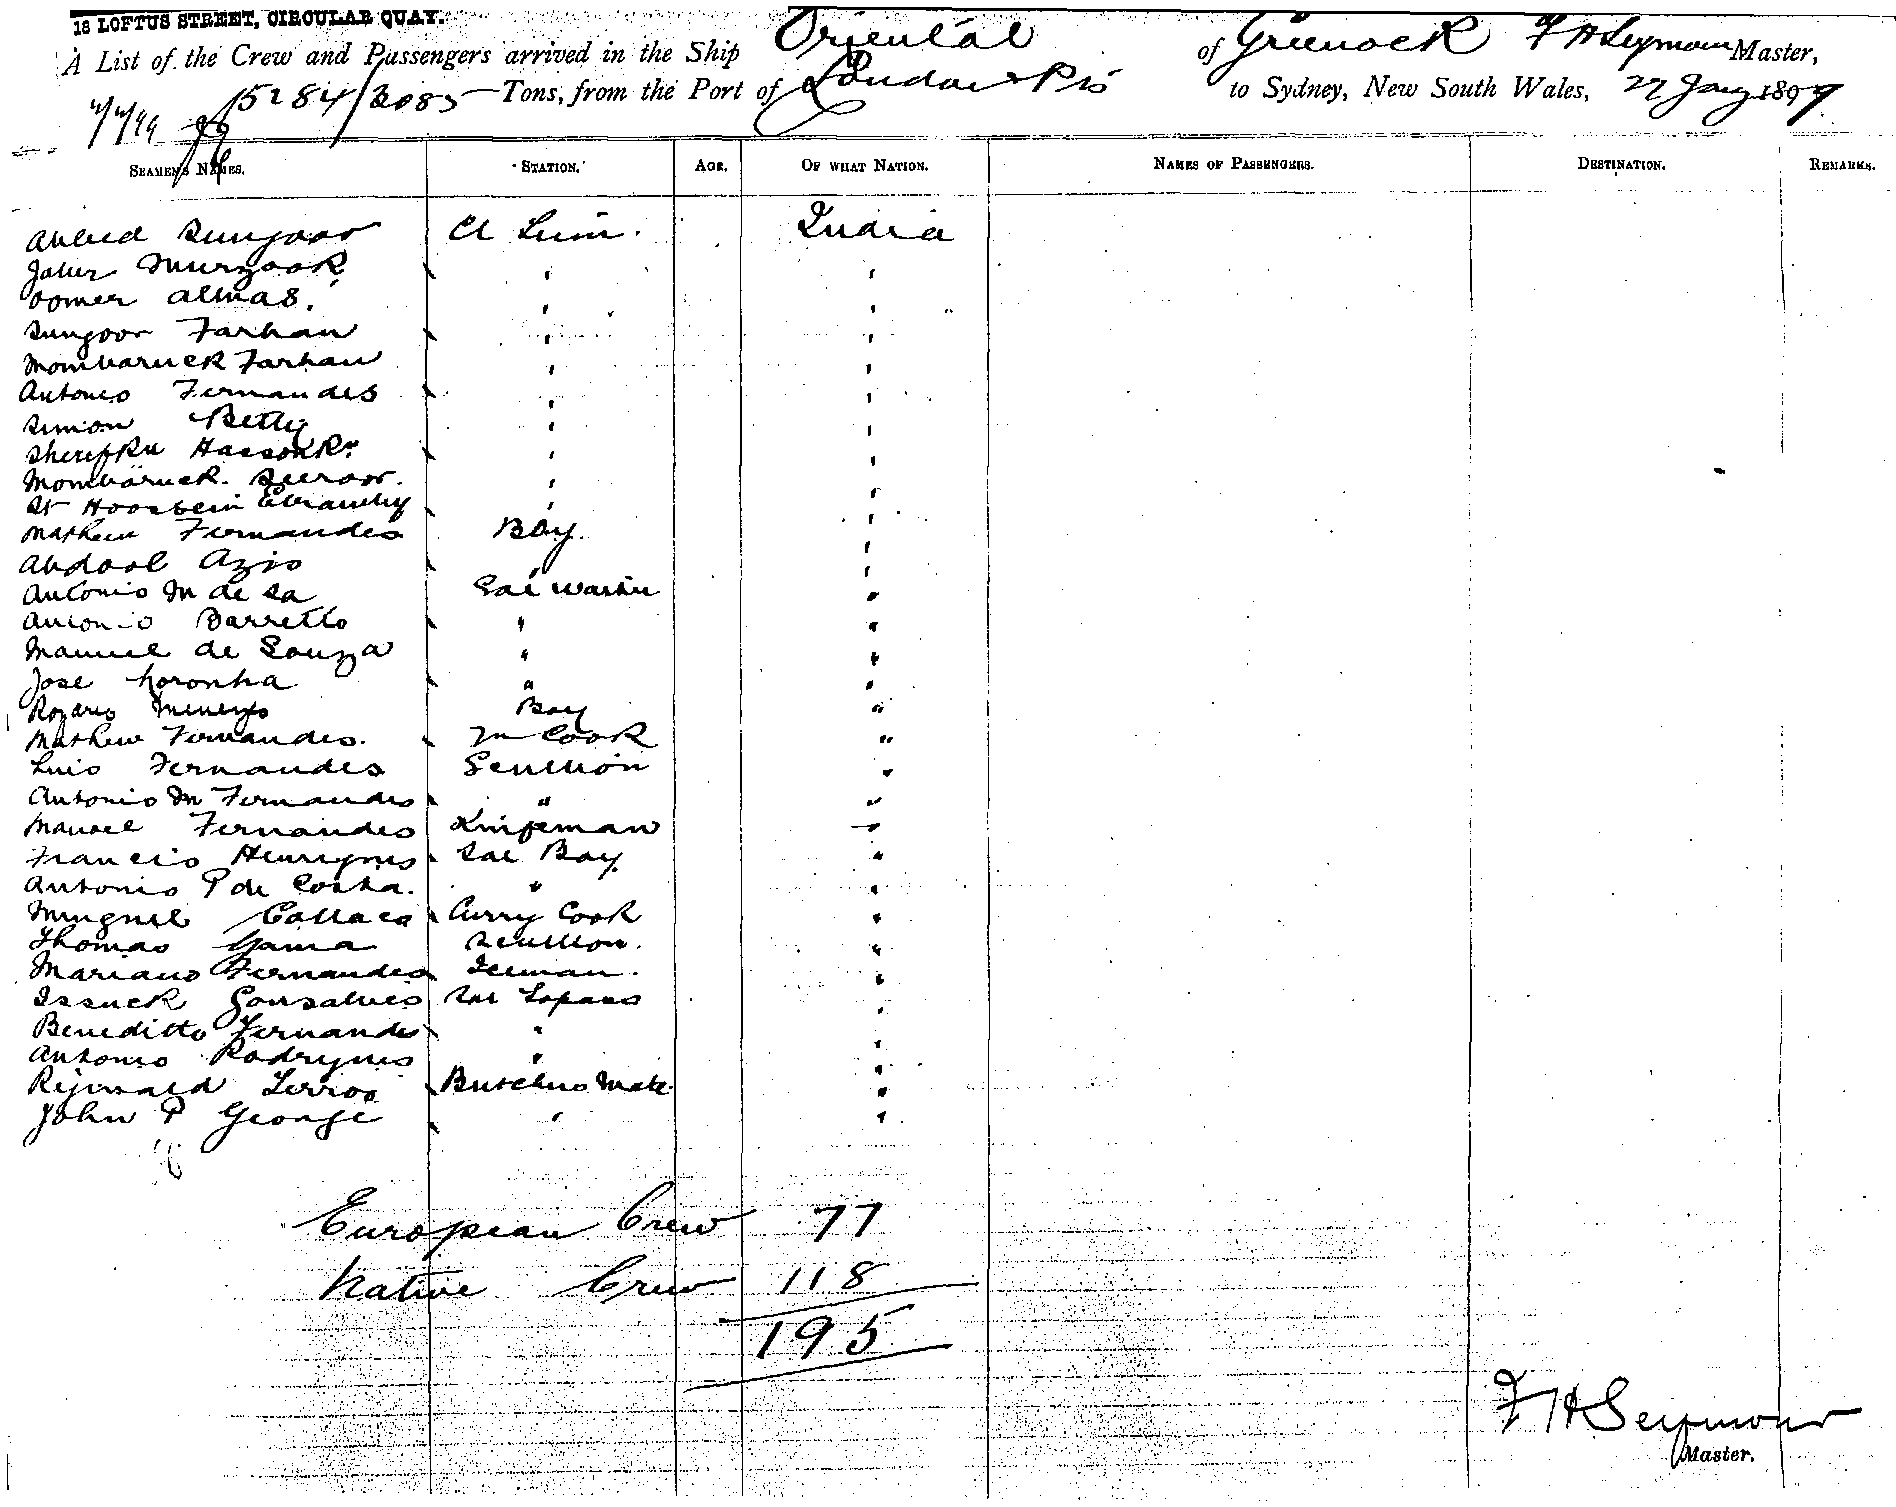 18 LOFTUS STREET, CIRCULAR QUAY.
A List of the Crew and Passengers arrived in the Ship Oriental of Greenock F H Seymour Master,
5284/3085 Tons, from the Port of London to Sydney, New South Wales, 27 Jany 1899
SEAMEN'S NAMES. STATION. AGE. OF WHAT NATION. NAMES OF PASSENGERS. DESTINATION. REMARKS.
Sungoor India
Murzook "
Oomer Almas. " "
Sungoor Farhan " "
Mombaruck Farhan " "
Antonio Fernandes " "
Simon Betty " "
" "
Mombaruck " "
Hoossein " "
Mathew Fernandes Boy. "
Abdool Azis "
Antonio M de Sa "
Antonio Barretto " "
Manuel de Souza " "
Jose Noronha " "
Rozario Boy "
Mathew Fernandes. Cook "
Luis Fernandes Scullion "
Antonio M Fernandes " "
Manoel Fernandes Knifeman "
Francis Henriques Boy "
Antonio P de Costa. " "
Minguel Collaco Curry Cook "
Thomas Gama Scullion. "
Mariano Fernandes "
Issuck Gonsalves "
Beneditto Fernandes " "
Antonio Rodrigues " "
Butchers Mate "
John P George " "
European Crew 77
Native Crew 118
195
F H Seymour
Master.